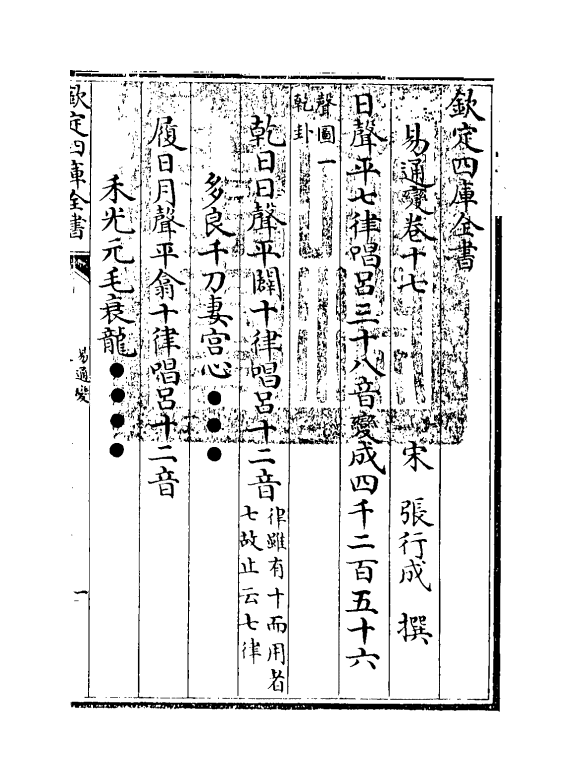 欽定四庫全書
易通變卷十七
宋 張行成 撰
日聲平七律唱呂三十八音變成四千二百五十六
聲圖一
乾卦
乾日日聲平闢十律唱呂十二音
律雖有十而用者
七故止云七律
多良千刀妻宮心●●●
履日月聲平翕十律唱呂十二音
禾光元毛衰龍●●●●
欽定四庫全書
易通變
一